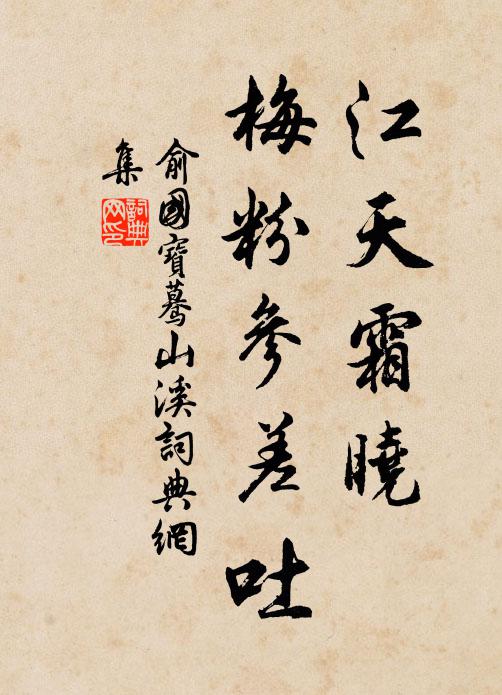 江天霜曉
梅粉參差吐
俞國寶驀山溪詞典網
集
詞典
网印